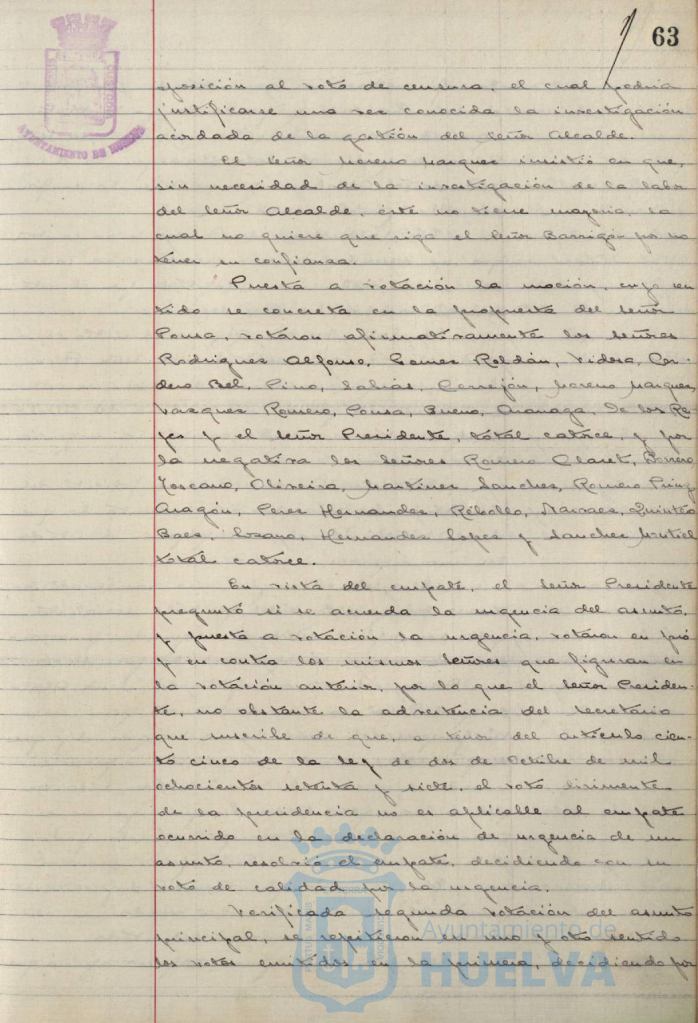 63
AYUNTAMIENTO DE HUELVA
oposición al voto de censura, el cual podria
justificarse una vez conocida la investigación
acordada de la gestión del señor Alcalde.
El señor Moreno Marquez insistió en que,
sin necesidad de la investigación de la labor
del señor Alcalde, éste no tiene mayoria, la
cual no quiere que siga el señor Barrigón por no
tener su confianza.
Puesta a votación la moción, cuyo sen-
tido se concreta en la propuesta del señor
Ponsa, votaron afirmativamente los señores
Rodriguez Alfonso, Gomez Roldán, Vidosa, Cor-
dero Bel, Pino, Sabiás, Cerrejón, Moreno Marquez,
Vazquez Romero, Ponsa, Bueno, de los Re-
yes y el señor Presidente, total catorce, y por
la negativa los señores Romero Claret, Borrero
Toscano, Oliveira, Martinez Sanchez, Romero
Aragón, Perez Hernandez, Rebollo, Narvaez, Quintero
Baez, Lozano, Hernandez Lopez y Sanchez
total catorce.
En vista del empate, el señor Presidente
preguntó si se acuerda la urgencia del asunto,
y puesta a votación la urgencia, votaron en pró
y en contra los mismos señores que figuran en
la votación anterior, por lo que el señor Presiden-
te, no obstante la advertencia del Secretario
que suscribe de que, a tenor del artículo cien-
to cinco de la ley de dos de Octubre de mil
ochocientos setenta y siete, el voto dirimente
de la presidencia no es aplicable al empate
ocurrido en la declaración de urgencia de un
asunto, resolvió el empate, decidiendo con su
voto de calidad por la urgencia.
Verificada segunda votación del asunto
principal, se repitieron en uno y otro sentido
los votos emitidos en la primera, decidiendo por
Ayuntamiento de
HUELVA